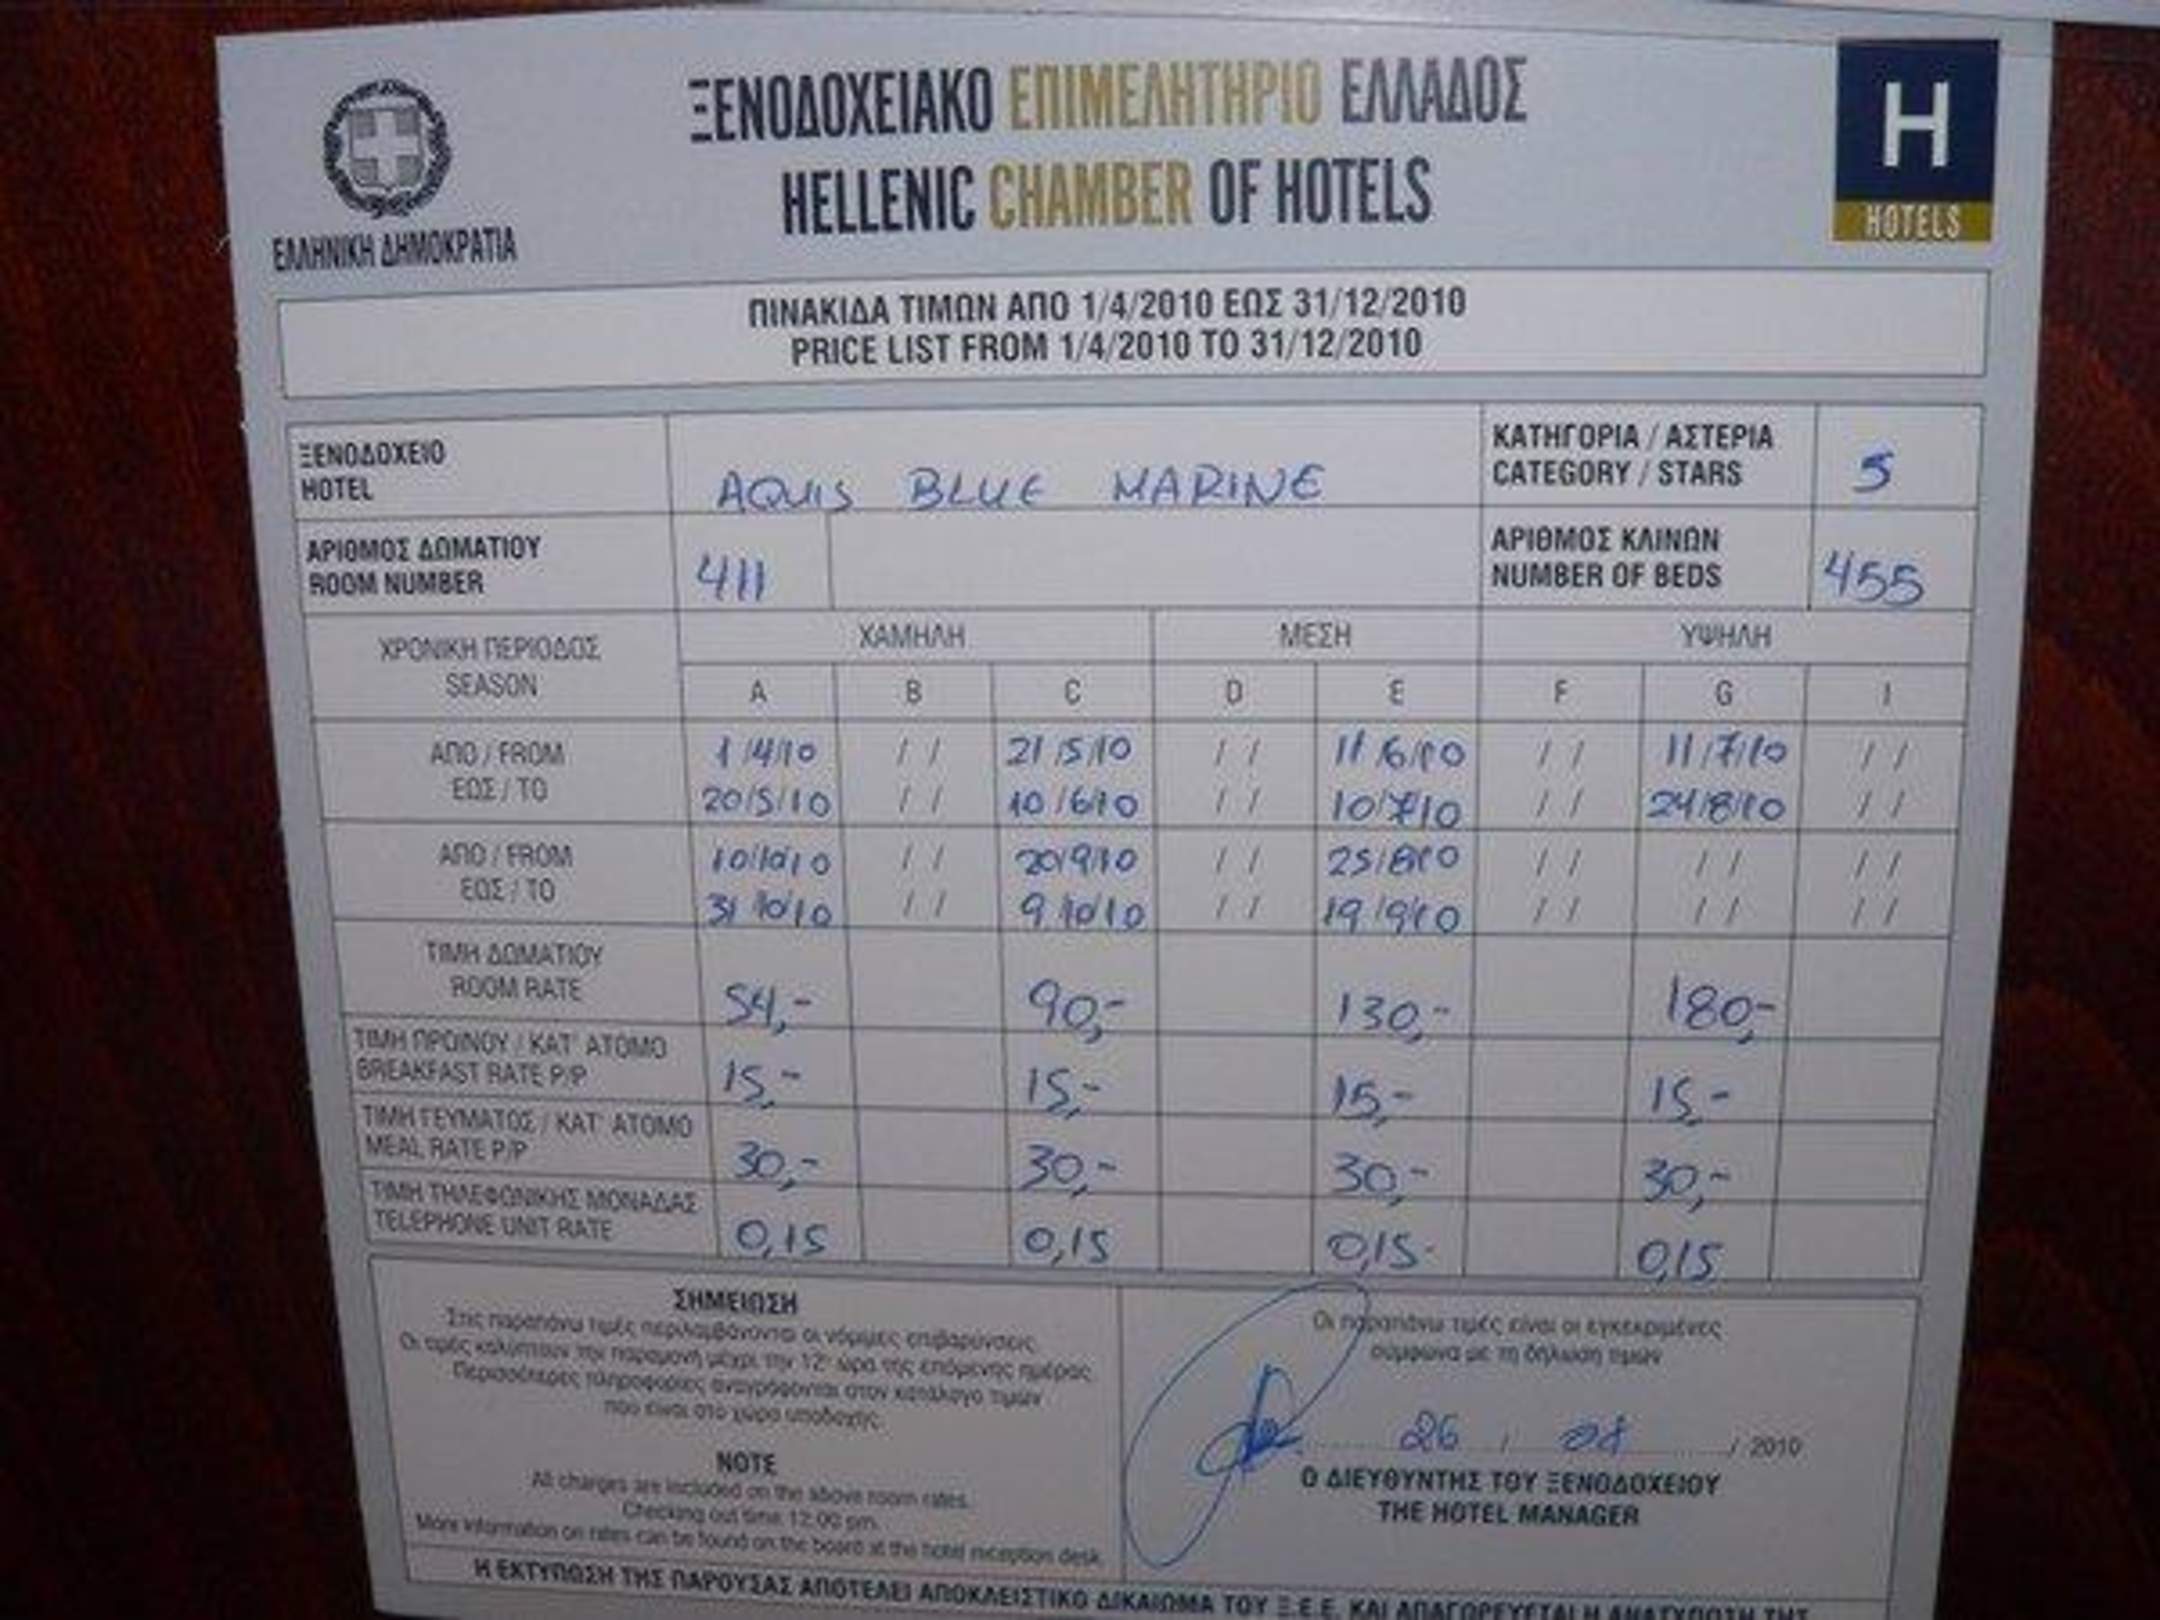 ΕΛΛΗΝΙΚΗ ΔΗΜΟΚΡΑΤΙΑ
ΞΕΝΟΔΟΧΕΙΑΚΟ ΕΠΙΜΕΛΗΤΗΡΙΟ ΕΛΛΑΔΟΣ
HELLENIC CHAMBER OF HOTELS
H
HOTELS
ΠΙΝΑΚΙΔΑ ΤΙΜΩΝ ΑΠΟ 1/4/2010 ΕΩΣ 31/12/2010
PRICE LIST FROM 1/4/2010 TO 31/12/2010
ΞΕΝΟΔΟΧΕΙΟ
HOTEL
AQUIS BLUE MARINE
ΚΑΤΗΓΟΡΙΑ / ΑΣΤΕΡΙΑ
CATEGORY / STARS
5
ΑΡΙΘΜΟΣ ΔΩΜΑΤΙΟΥ
ROOM NUMBER
411
ΑΡΙΘΜΟΣ ΚΛΙΝΩΝ
NUMBER OF BEDS
455
ΧΡΟΝΙΚΗ ΠΕΡΙΟΔΟΣ
SEASON
ΧΑΜΗΛΗ ΜΕΣΗ ΥΨΗΛΗ
A B C D E F G I
ΑΠΟ / FROM
1/4/10 / / 21/5/10 / / 11/6/10 / / 11/7/10 / /
ΕΩΣ / TO
20/5/10 / / 10/6/10 / / 10/7/10 / / 24/8/10 / /
ΑΠΟ / FROM
10/10/10 / / 20/9/10 / / 25/8/10 / / / / / /
ΕΩΣ / TO
31/10/10 / / 9/10/10 / / 19/9/10 / / / / / /
ΤΙΜΗ ΔΩΜΑΤΙΟΥ
ROOM RATE
54,- 90,- 130,- 180,-
ΤΙΜΗ ΠΡΩΙΝΟΥ / ΚΑΤ' ΑΤΟΜΟ
BREAKFAST RATE P/P
15,- 15,- 15,- 15,-
ΤΙΜΗ ΓΕΥΜΑΤΟΣ / ΚΑΤ' ΑΤΟΜΟ
MEAL RATE P/P
30,- 30,- 30,- 30,-
ΤΙΜΗ ΤΗΛΕΦΩΝΙΚΗΣ ΜΟΝΑΔΑΣ
TELEPHONE UNIT RATE
0,15 0,15 0,15 0,15
ΣΗΜΕΙΩΣΗ
Στις παραπάνω τιμές περιλαμβάνονται οι νόμιμες επιβαρύνσεις.
Οι τιμές καλύπτουν την παραμονή μέχρι την 12η ώρα της επόμενης ημέρας.
Περισσότερες πληροφορίες αναγράφονται στον κατάλογο τιμών
που είναι στο χώρο υποδοχής.
NOTE
All charges are included on the above room rates.
Checking out time 12:00 pm.
More information on rates can be found on the board at the hotel reception desk.
Οι παραπάνω τιμές είναι οι εγκεκριμένες
σύμφωνα με τη δήλωση τιμών
26 / / 2010
Ο ΔΙΕΥΘΥΝΤΗΣ ΤΟΥ ΞΕΝΟΔΟΧΕΙΟΥ
THE HOTEL MANAGER
Η ΕΚΤΥΠΩΣΗ ΤΗΣ ΠΑΡΟΥΣΑΣ ΑΠΟΤΕΛΕΙ ΑΠΟΚΛΕΙΣΤΙΚΟ ΔΙΚΑΙΩΜΑ ΤΟΥ Ξ.Ε.Ε. ΚΑΙ ΑΠΑΓΟΡΕΥΕΤΑΙ Η ΑΝΑΤΥΠΩΣΗ ΤΗΣ